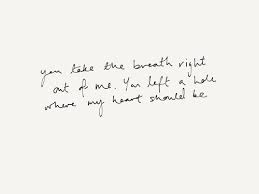 you take the breath right
out of me. You left a hole
where my heart should be